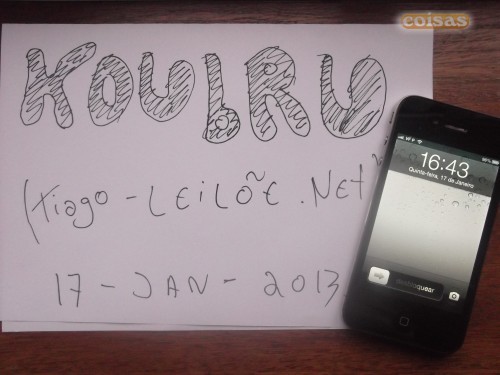 coisas
KOULRU
(Tiago - LEiLÕE.NET
17 - JAN - 2013
16:43
Quinta-feira, 17 de Janeiro
desbloquear